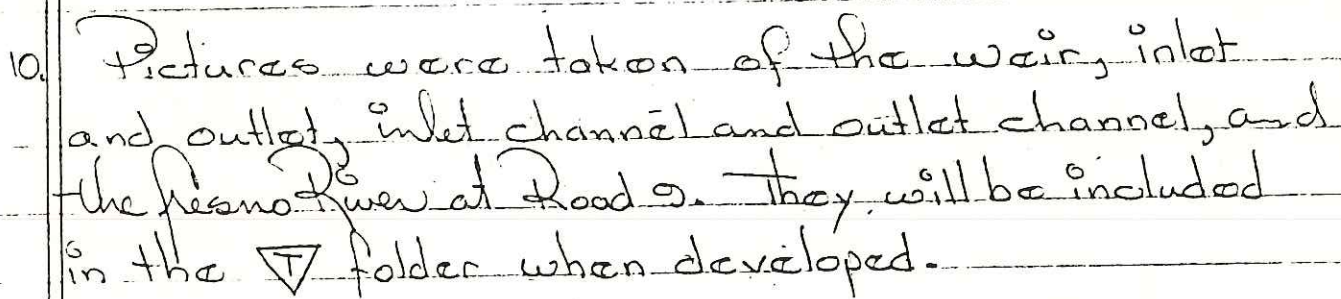 10. Pictures were taken of the weir, inlet
and outlet, inlet channel and outlet channel, and
the fresno River at Road 9. They will be included
in the T folder when developed.